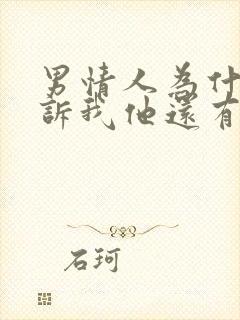 男情人為什
訴我他還有
石珂